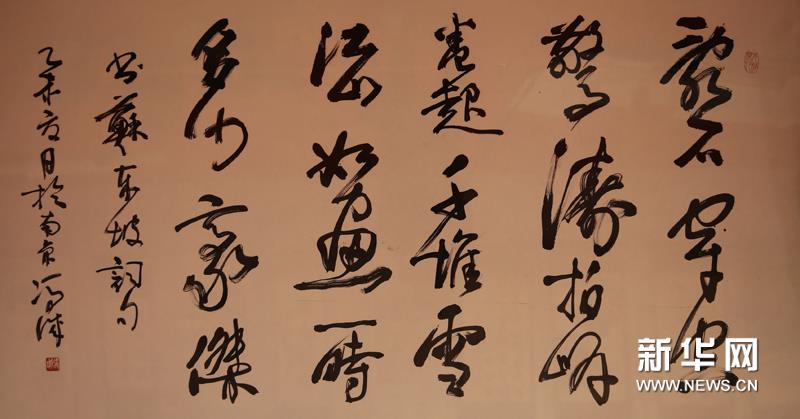 亂石穿空
驚濤拍岸
卷起千堆雪
江山如畫一時
多少豪傑
书蘇東坡詞句
乙未夏月於南京
新华网
WWW.NEWS.CN